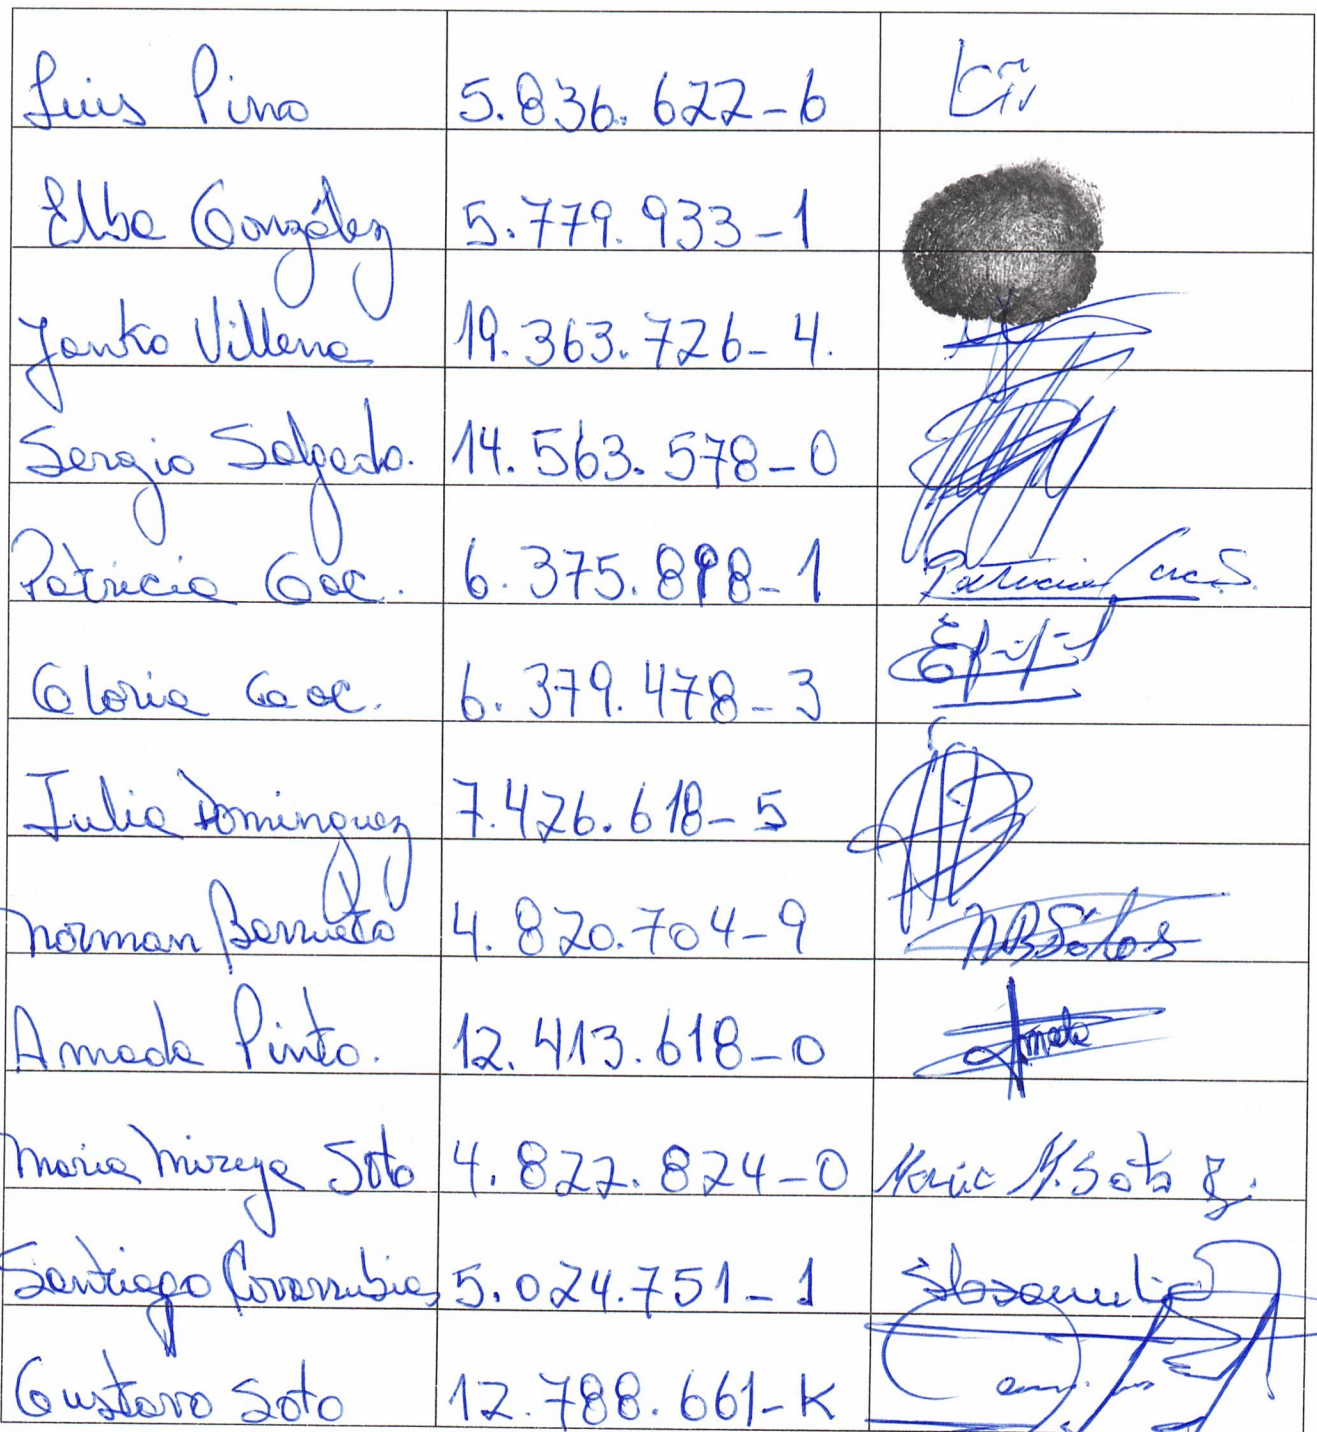 Luis Pino 5.836.622-6
Elba González 5.779.933-1
Yanko Villena 19.363.726-4.
Sergio Salgado. 14.563.578-0
Patricia 6.375.898-1 Patricia
Gloria 6.379.478-3
Julia Dominguez 7.426.618-5
Norman Berrueto 4.820.704-9
Amada Pinto. 12.413.618-0 Amada
Maria Mireya Soto 4.822.824-0 Maria M. Soto
Santiago Covarrubias 5.024.751-1
Gustavo Soto 12.788.661-K